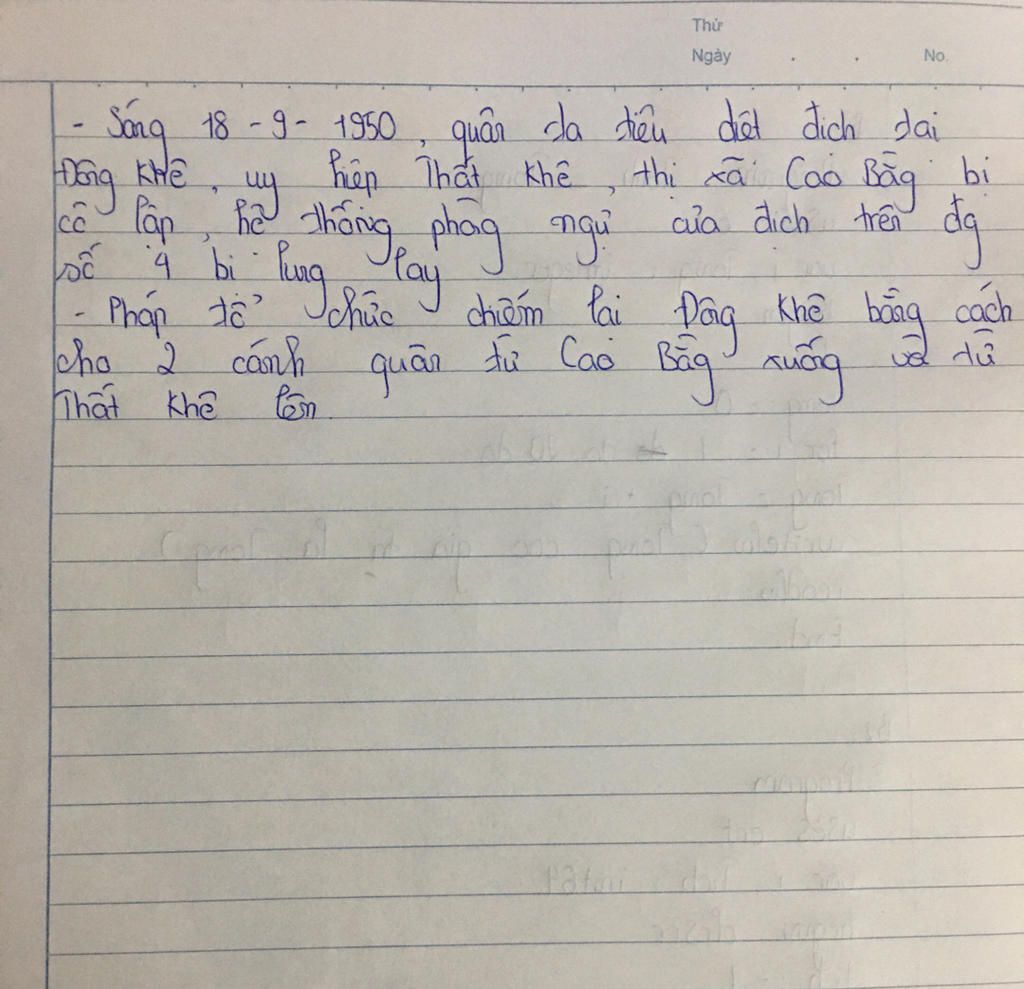 Thứ
Ngày . . No.
- Sáng 18 - 9 - 1950, quân ta tiêu diệt địch tại
Đông Khê, uy hiếp Thất Khê, thị xã Cao Bằg bị
cô lập, hệ thống phòg ngự của địch trên đg
số 4 bị lung lay
- Pháp tổ chức chiếm lại Đôg Khê bằng cách
cho 2 cánh quân từ Cao Bằg xuống và từ
Thất Khê lên.